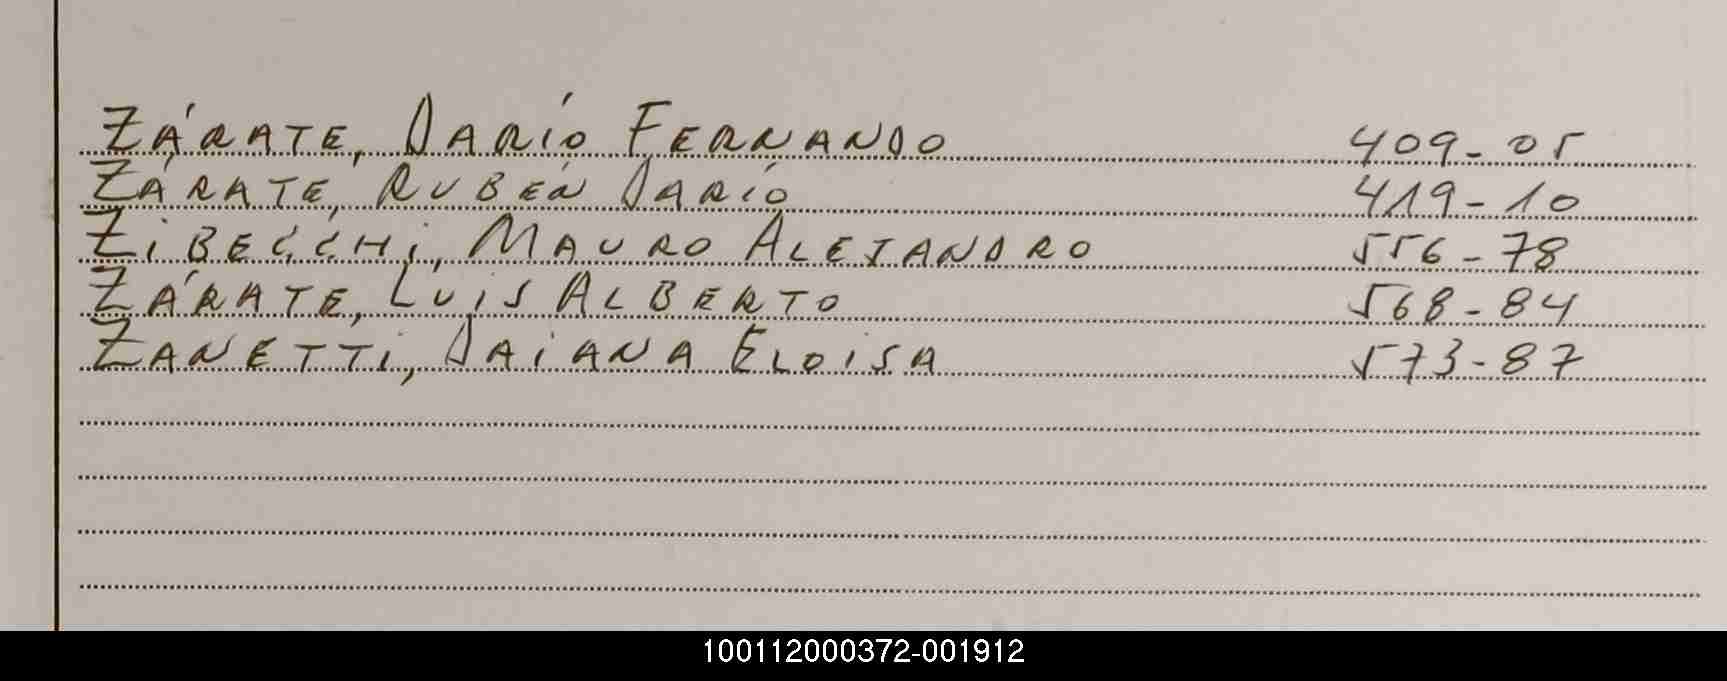 ZÁRATE, DARÍO FERNANDO 409-05
ZÁRATE, RUBÉN DARÍO 419-10
ZIBECCHI, MAURO ALEJANDRO 556-78
ZÁRATE, LUIS ALBERTO 568-84
ZANETTI, DAIANA ELOISA 573-87
100112000372-001912